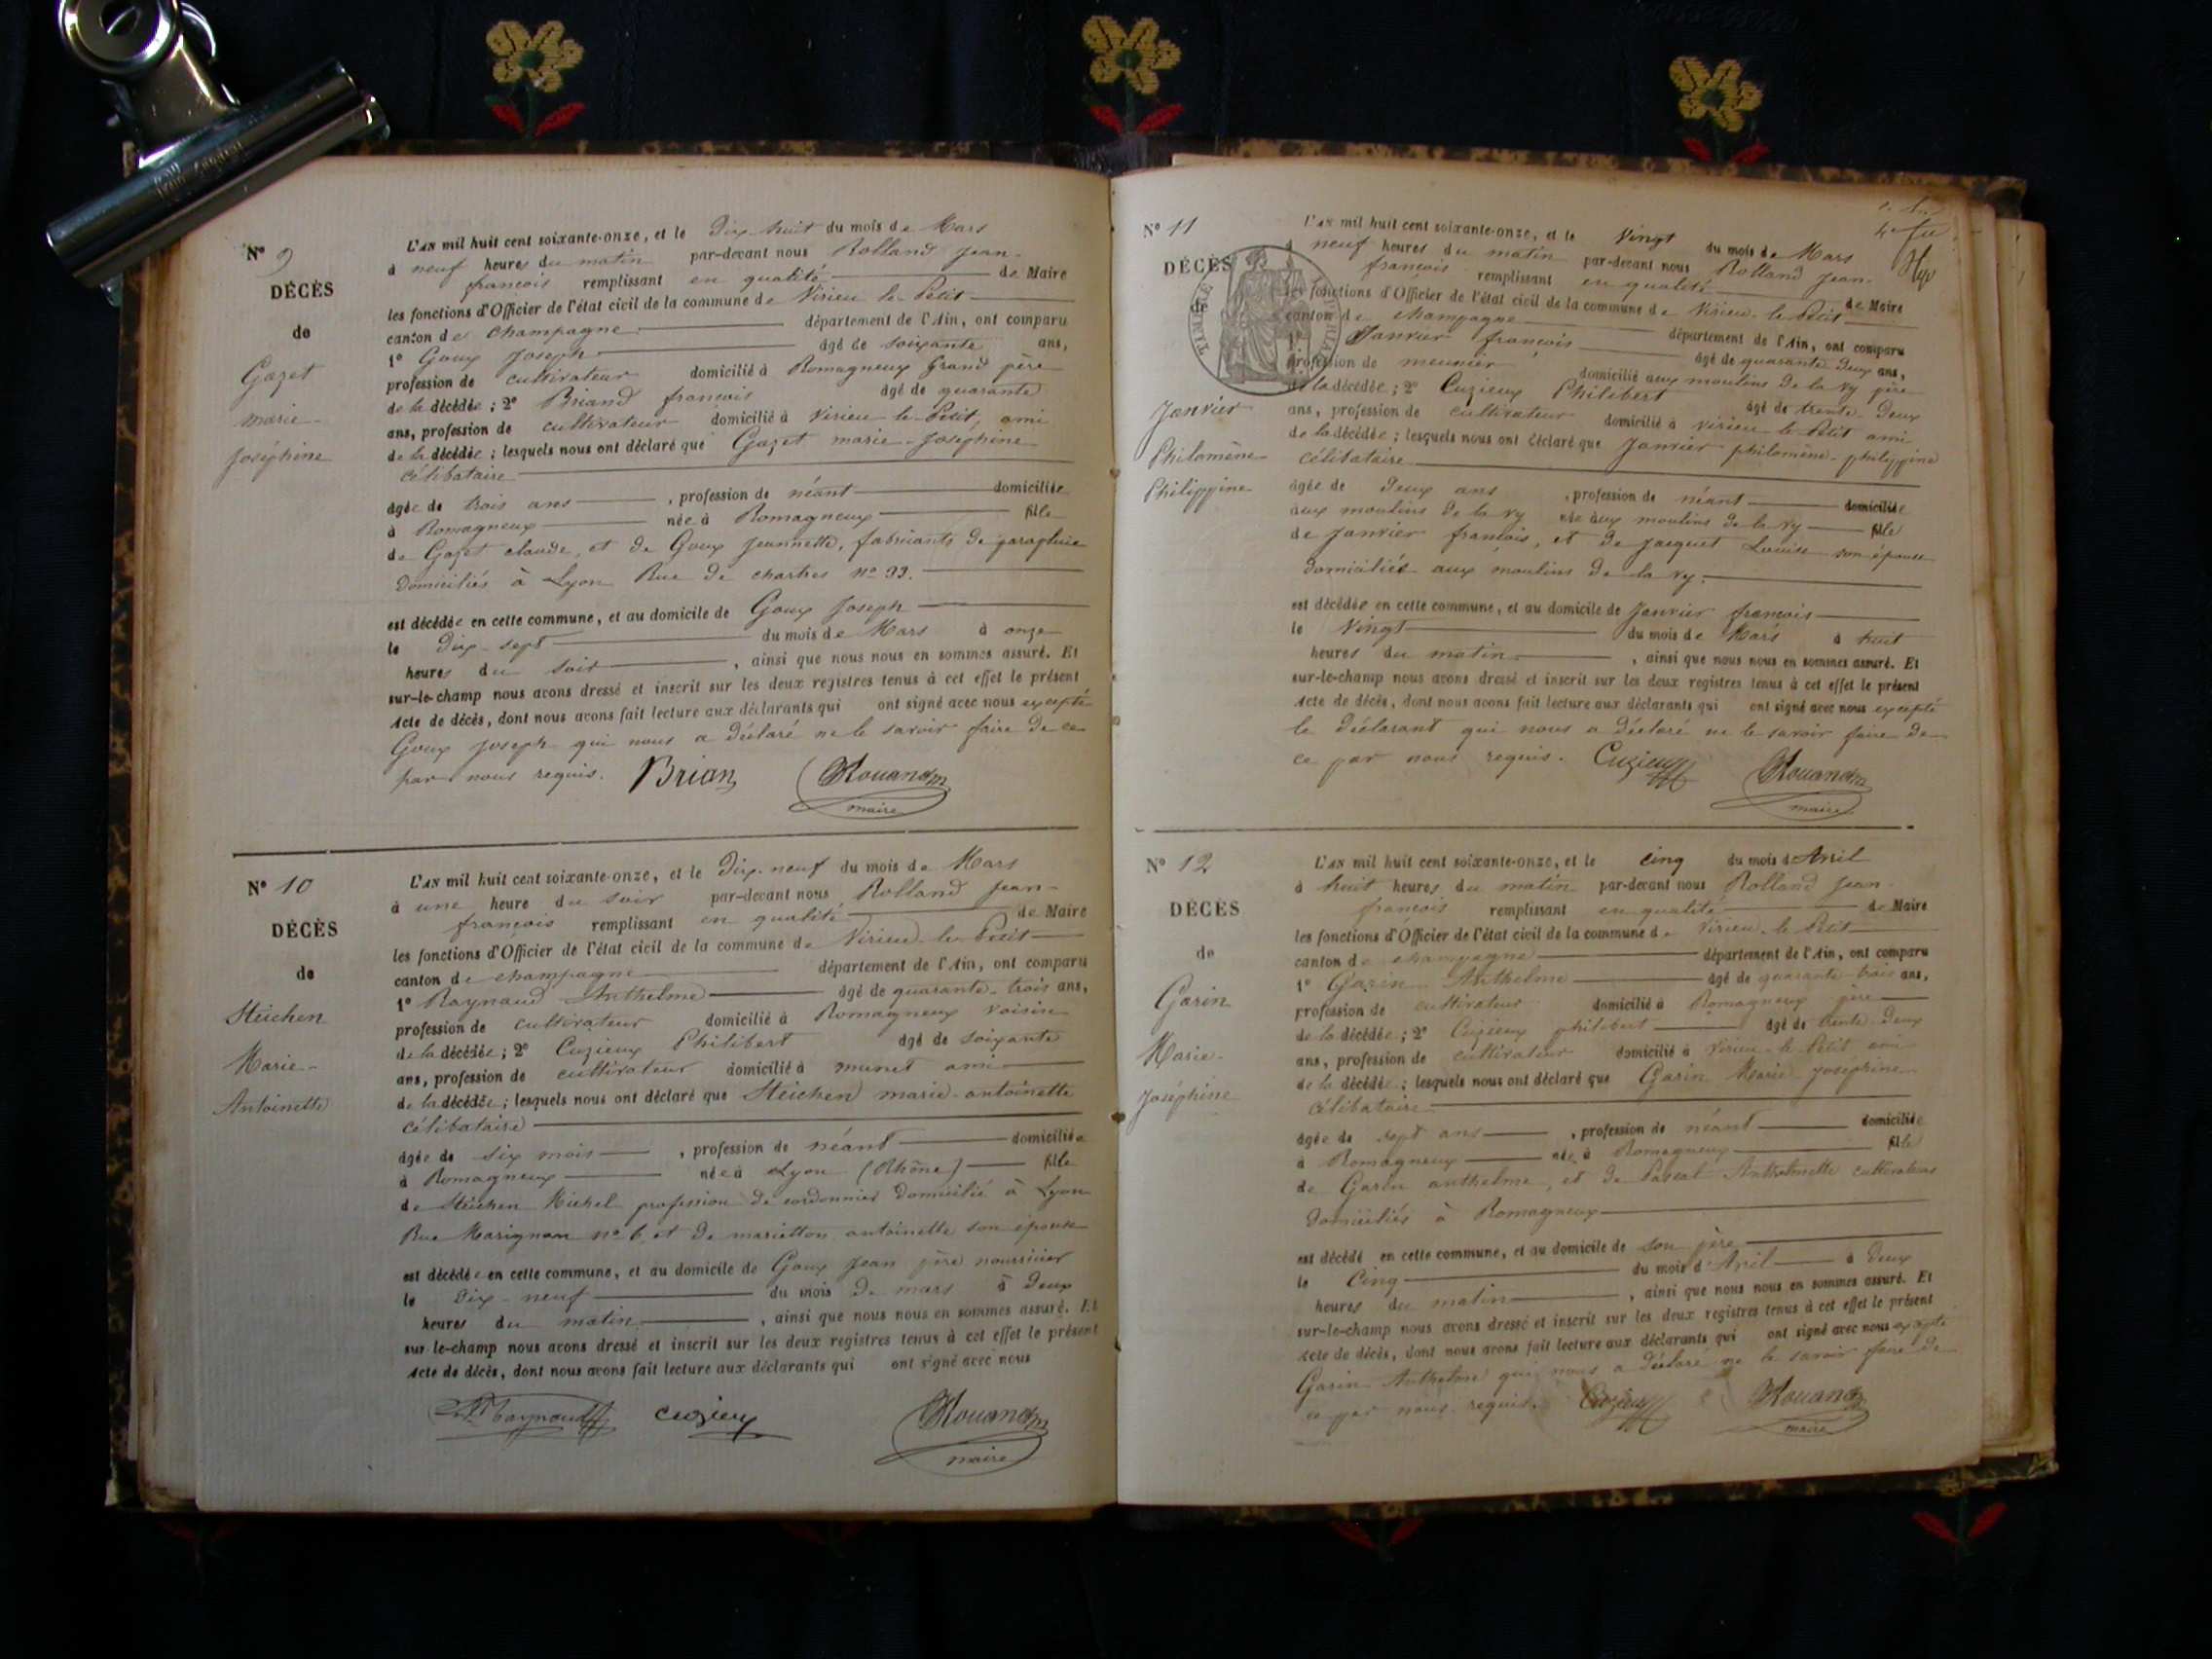 Nº 9
DÉCÈS
de
Gazet
marie-
Joséphine
L'AN mil huit cent soixante-onze, et le Dix-huit du mois de Mars
à neuf heures du matin par-devant nous Rolland Jean-
françois remplissant en qualité de Maire
les fonctions d'Officier de l'état civil de la commune de Virieu-le-Petit
canton de champagne département de l'Ain, ont comparu
1º Goux Joseph âgé de soixante ans,
profession de cultivateur domicilié à Romagneux Grand père
de la décédée ; 2º Briand françois âgé de quarante
ans, profession de cultivateur domicilié à Virieu-le-Petit, ami
de la décédée ; lesquels nous ont déclaré que Gazet marie-Joséphine
célibataire
âgée de trois ans , profession de néant domiciliée
à Romagneux née à Romagneux fille
de Gazet claude, et de Goux Jeannette, fabricants de parapluie
Domiciliés à Lyon Rue de chartres nº 33.
est décédée en cette commune, et au domicile de Goux Joseph
le Dix-sept du mois de Mars à onze
heures du soir , ainsi que nous nous en sommes assuré. Et
sur-le-champ nous avons dressé et inscrit sur les deux registres tenus à cet effet le présent
Acte de décès, dont nous avons fait lecture aux déclarants qui ont signé avec nous excepté
Goux Joseph qui nous a déclaré ne le savoir faire de ce
par nous requis. Brian
maire
Nº 10
DÉCÈS
de
Steichen
Marie-
Antoinette
L'AN mil huit cent soixante-onze, et le Dix-neuf du mois de Mars
à une heure du soir par-devant nous Rolland Jean-
françois remplissant en qualité de Maire
les fonctions d'Officier de l'état civil de la commune de Virieu-le-Petit
canton de champagne département de l'Ain, ont comparu
1º Raynaud Anthelme âgé de quarante-trois ans,
profession de cultivateur domicilié à Romagneux voisin
de la décédée ; 2º Cuzieux Philibert âgé de soixante
ans, profession de cultivateur domicilié à munet ami
de la décédée ; lesquels nous ont déclaré que Steichen marie-antoinette
célibataire
âgée de six mois , profession de néant domiciliée
à Romagneux née à Lyon (Rhône) fille
de Steichen Michel profession de cordonnier domicilié à Lyon
Rue Marignan nº 6, et de marietton antoinette son épouse
est décédée en cette commune, et au domicile de Goux Jean père nourricier
le Dix-neuf du mois de mars à deux
heures du matin , ainsi que nous nous en sommes assuré. Et
sur-le-champ nous avons dressé et inscrit sur les deux registres tenus à cet effet le présent
Acte de décès, dont nous avons fait lecture aux déclarants qui ont signé avec nous
Raynaud Cuzieux
maire
Nº 11
DÉCÈS
de
Janvier
Philomène
Philippine
L'AN mil huit cent soixante-onze, et le Vingt du mois de Mars
à neuf heures du matin par-devant nous Rolland Jean-
françois remplissant en qualité de Maire
les fonctions d'Officier de l'état civil de la commune de Virieu-le-Petit
canton de champagne département de l'Ain, ont comparu
1º Janvier françois âgé de quarante deux ans,
profession de meunier domicilié aux moulins de la vy père
de la décédée ; 2º Cuzieux Philibert âgé de trente-deux
ans, profession de cultivateur domicilié à Virieu-le-Petit ami
de la décédée ; lesquels nous ont déclaré que Janvier philomène-philippine
célibataire
âgée de Deux ans , profession de néant domiciliée
aux moulins de la vy née aux moulins de la vy fille
de Janvier françois, et de Jacquet Louise son épouse
domiciliés aux moulins de la vy.
est décédée en cette commune, et au domicile de Janvier françois
le Vingt du mois de Mars à huit
heures du matin , ainsi que nous nous en sommes assuré. Et
sur-le-champ nous avons dressé et inscrit sur les deux registres tenus à cet effet le présent
Acte de décès, dont nous avons fait lecture aux déclarants qui ont signé avec nous excepté
le Déclarant qui nous a déclaré ne le savoir faire de
ce par nous requis. Cuzieux
maire
Nº 12
DÉCÈS
de
Garin
Marie-
Joséphine
L'AN mil huit cent soixante-onze, et le cinq du mois d'Avril
à huit heures du matin par-devant nous Rolland Jean-
françois remplissant en qualité de Maire
les fonctions d'Officier de l'état civil de la commune de Virieu-le-Petit
canton de champagne département de l'Ain, ont comparu
1º Garin Anthelme âgé de quarante-trois ans,
profession de cultivateur domicilié à Romagneux père
de la décédée ; 2º Cuzieux philibert âgé de trente-deux
ans, profession de cultivateur domicilié à Virieu-le-Petit ami
de la décédée ; lesquels nous ont déclaré que Garin Marie-Joséphine
célibataire
âgée de sept ans , profession de néant domiciliée
à Romagneux née à Romagneux fille
de Garin anthelme, et de Pascal Anthelmette cultivateurs
Domiciliés à Romagneux
est décédé en cette commune, et au domicile de son père
le Cinq du mois d'Avril à deux
heures du matin , ainsi que nous nous en sommes assuré. Et
sur-le-champ nous avons dressé et inscrit sur les deux registres tenus à cet effet le présent
Acte de décès, dont nous avons fait lecture aux déclarants qui ont signé avec nous excepté
Garin Anthelme qui nous a déclaré ne le savoir faire de
ce par nous requis. Cuzieux
maire